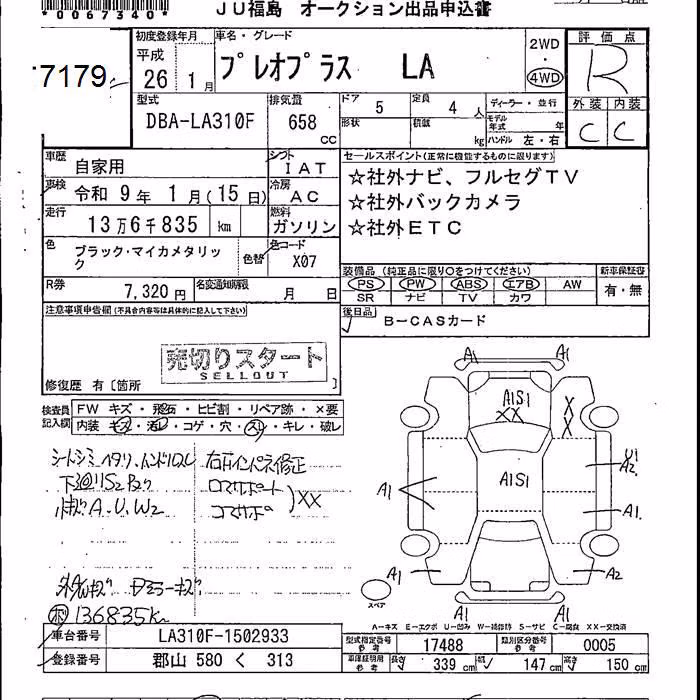 *0067340*
JU福島 オークション出品申込書
7179
初度登録年月
平成
26 1 月
車名・グレード
プレオプラス LA
2WD
4WD
評価点
R
型式
DBA-LA310F
排気量
658 cc
ドア 5
定員 4 人
形状
積載 kg
ディーラー・並行
モデル年式 年
ハンドル 左・右
外装 内装
C C
車歴 自家用
シフト IAT
車検 令和 9年 1月(15日)
冷房 AC
走行 13万6千835 km
燃料 ガソリン
色 ブラック・マイカメタリック
色替
色コード X07
R券 7,320 円
名変通知期限 月 日
セールスポイント(正常に機能するものに限ります)
☆社外ナビ、フルセグTV
☆社外バックカメラ
☆社外ETC
装備品 (純正品に限り○をつけてください)
新車保証書
PS PW ABS エアB AW
SR ナビ TV カワ
有・無
後日品 B-CASカード
注意事項申告欄(不具合内容等は具体的に記入して下さい)
売切りスタート
SELLOUT
修復歴 有〔箇所 〕
検査員記入欄
FW キズ・飛石・ヒビ割・リペア跡・×要
内装 キズ・汚レ・コゲ・穴・スレ・キレ・破レ
シートシミ・ヘタリ、ハンドルスレ
右インパネ修正
下廻りS2
コアサポート
XX
小キズA、U、W2
コアサポ
136835km
A1 A1
A1S1
XX
X
X
A1S1
A1
A2
A1
A1
A2
A1 A1
スペア
A-キズ E-エクボ U-凹み W-補修跡 S-サビ C-腐食 XX-交換済
車台番号 LA310F-1502933
型式指定番号 参考 17488
類別区分番号 参考 0005
登録番号 郡山 580 く 313
車庫証明用 参考 長さ 339 cm 幅 147 cm 高さ 150 cm